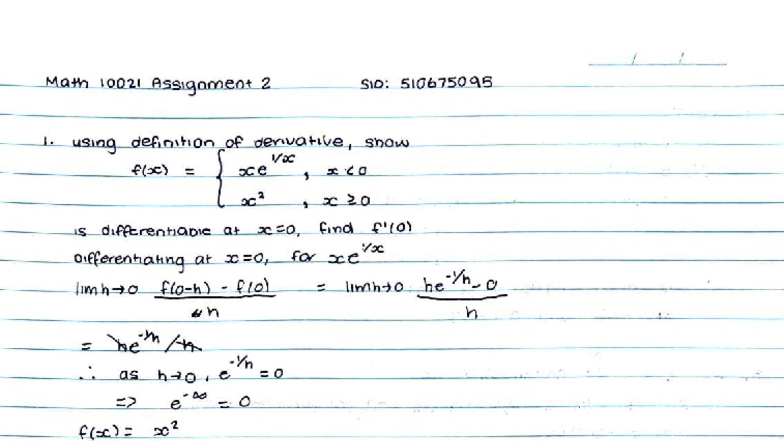 Math 10021 Assignment 2 SID: 510675095
1. using definition of derivative, show
f(x) = { xe^{1/x} , x < 0
x² , x ≥ 0
is differentiable at x=0, find f'(0)
Differentiating at x=0, for xe^{1/x}
lim h→0 f(0-h) - f(0) / h = lim h→0 he^{-1/h} - 0 / h
= he^{-1/h} / h
∴ as h→0, e^{-1/h} = 0
=> e^{-∞} = 0
f(x) = x²